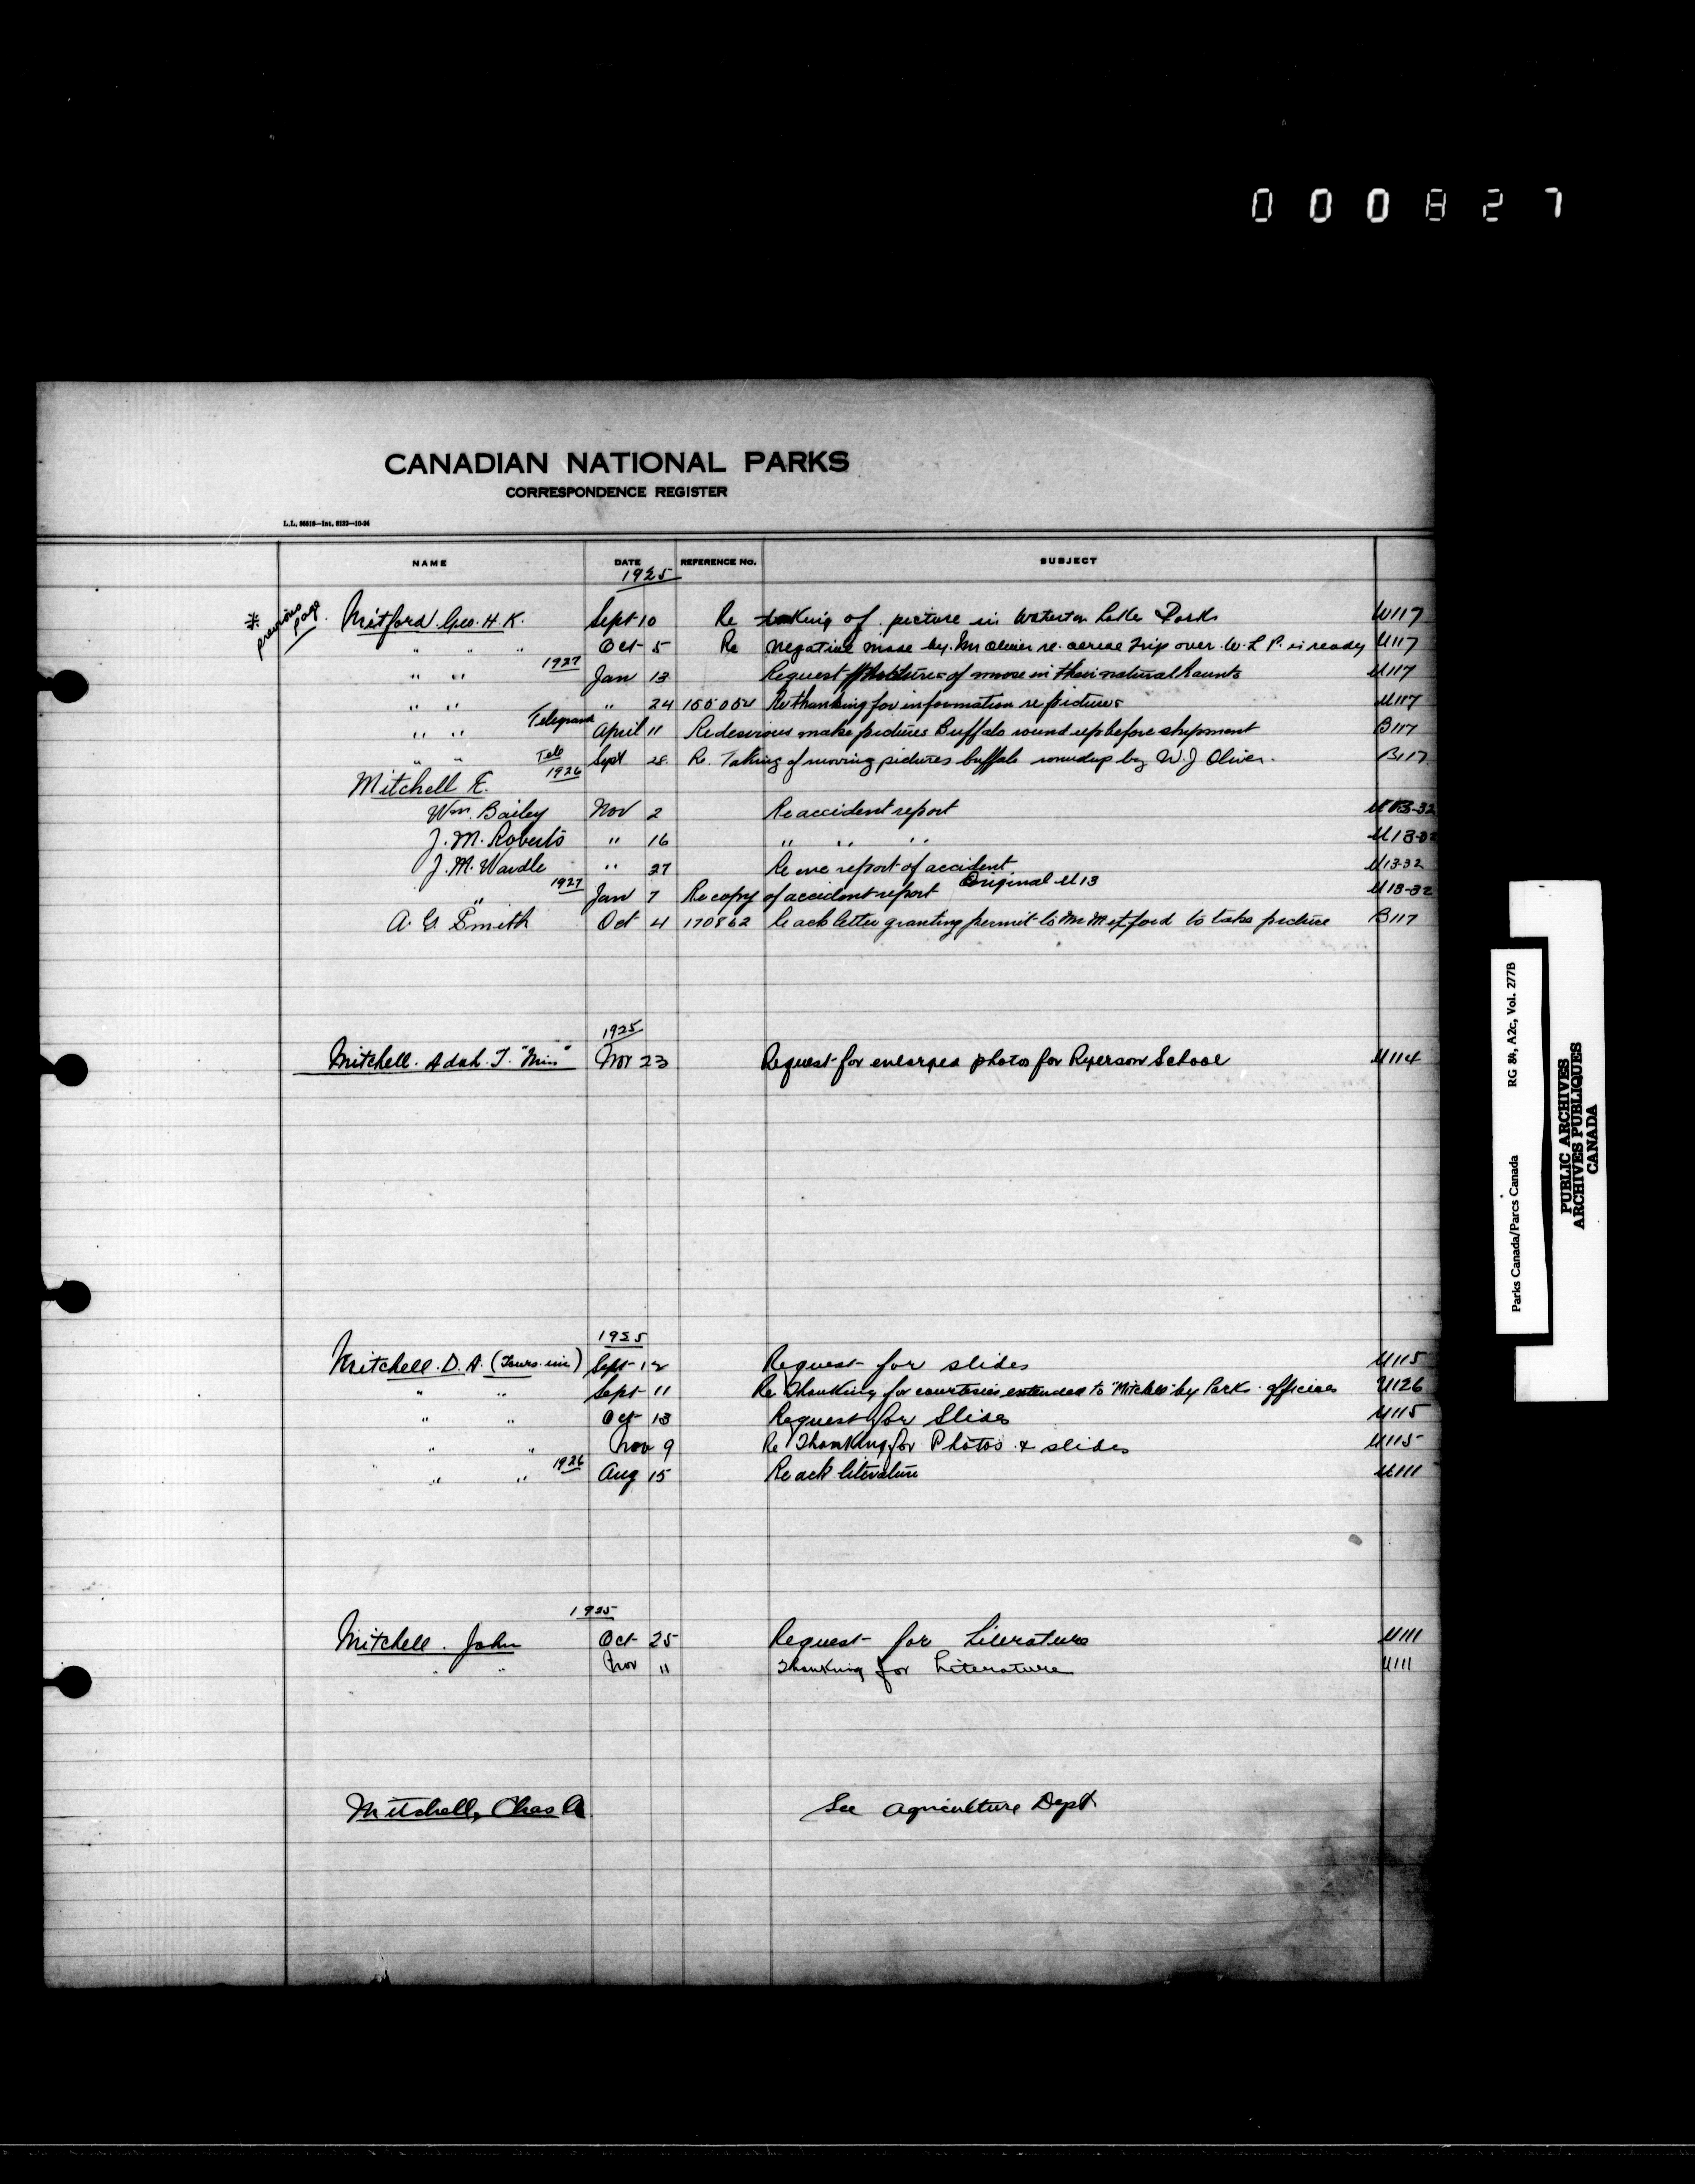 000827
CANADIAN NATIONAL PARKS
CORRESPONDENCE REGISTER
L.L. 86516—Int. 8133—10-24
NAME DATE REFERENCE No. SUBJECT
1925
* previous page. Mitford Geo. H. K. Sept 10 Re taking of picture in Waterton Lakes Parks W117
" " " Oct 5 Re Negative made by Mr Oliver re. aereal trip over W. L P. is ready U117
1927
" " Jan 13 Request of moose in their natural haunts U117
" " " 24 155054 Re thanking for information re pictures U117
" " Telegram April 11 Re desirous make pictures Buffalo round up before shipment B117
" " Tele Sept 28 Re. Taking of moving pictures buffalo roundup by W. J Oliver. B117
1926
Mitchell E.
Wm. Bailey Nov 2 Re accident report U13-32
J. M. Roberts " 16 " " " U13-32
J. M. Wardle " 27 Re enc report of accident U13-32
1927
" Jan 7 Re copy of accident report Original U13 U13-32
A. G Smith Oct 4 170862 Re ack letter granting permit to Mr Metford to take picture B117
1925
Mitchell. Adah. T. "Miss" Nov 23 Request for enlarged photos for Ryerson School U114
1925
Mitchell. D. A. (Tours. inc) Sept 12 Request for slides U115
" " Sept 11 Re Thanking for courtesies extended to "Mitchell" by Parks officials U126
" " Oct 13 Request for Slides U115
" " Nov 9 Re Thanking for Photos & slides U115
1926
" " Aug 15 Re ack literature U111
1925
Mitchell. John Oct 25 Request for Literature U111
" " Nov 11 Thanking for Literature U111
Mitchell, Chas A. See Agriculture Dept
Parks Canada/Parcs Canada RG 84, A2c, Vol. 2778
PUBLIC ARCHIVES
ARCHIVES PUBLIQUES
CANADA